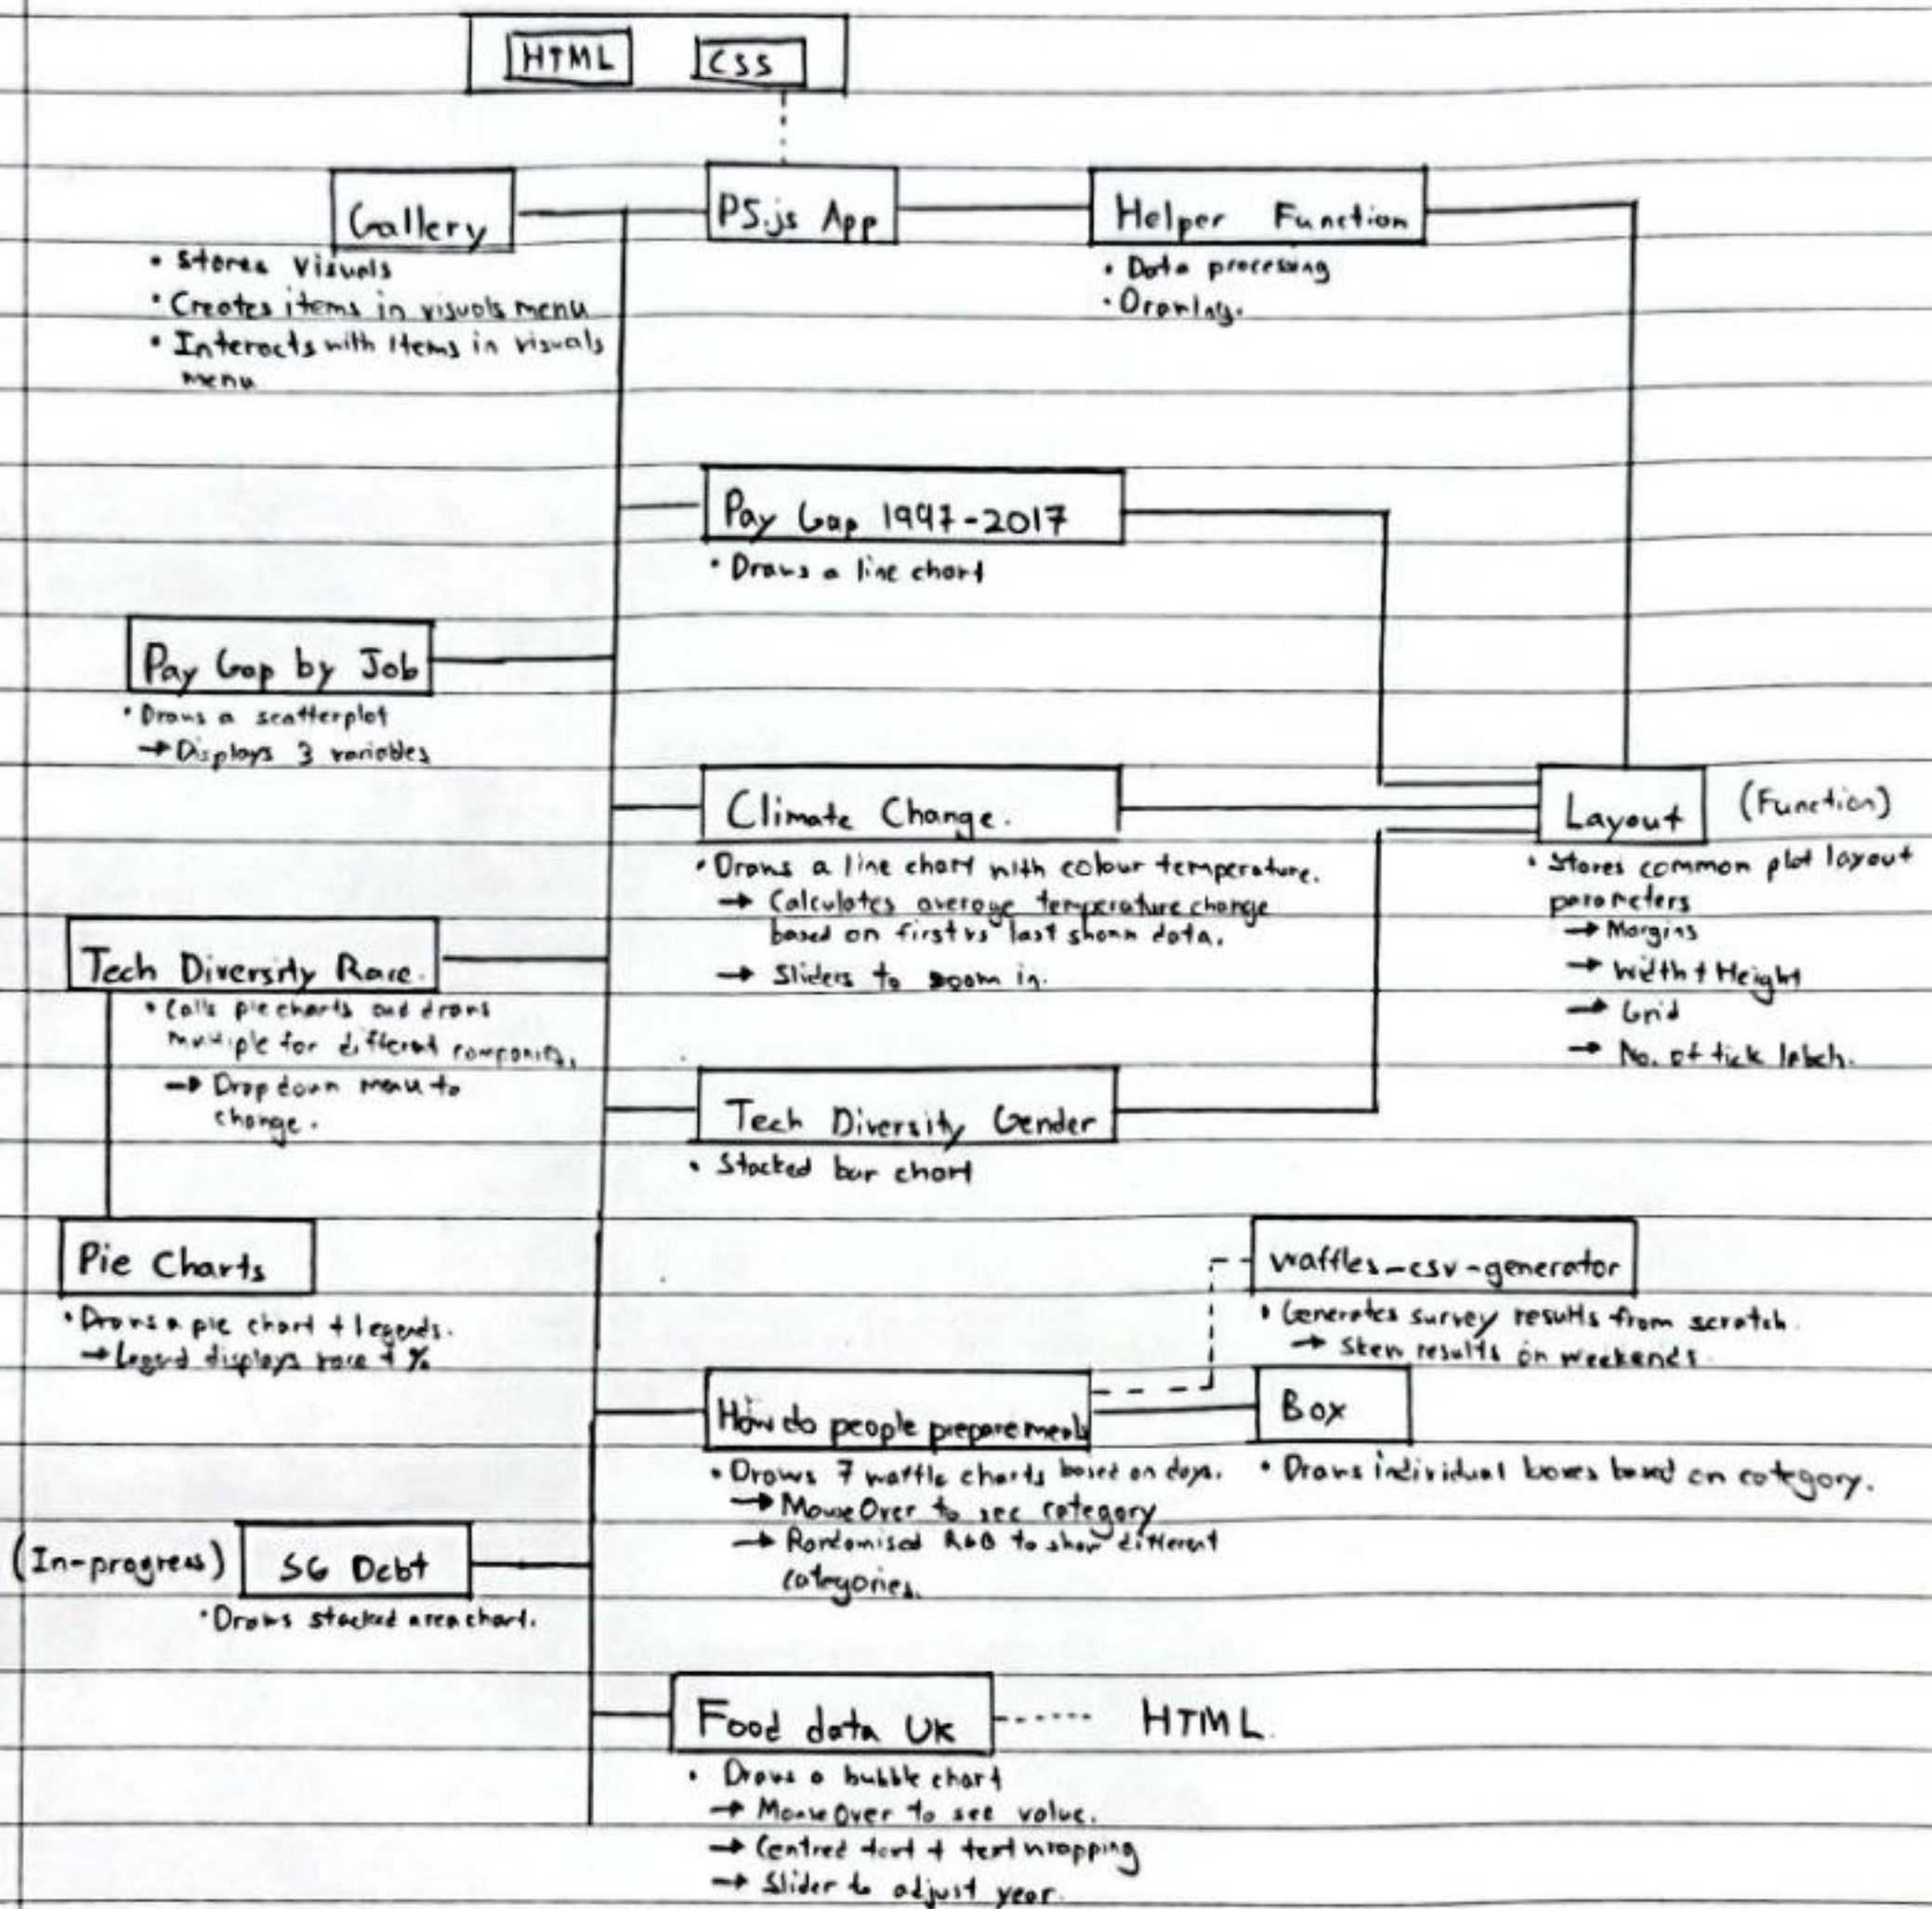 HTML CSS
Gallery
P5.js App
Helper Function
• Stores visuals
• Creates items in visuals menu
• Interacts with items in visuals
menu
• Data processing
• Drawing.
Pay Gap 1997-2017
• Draws a line chart
Pay Gap by Job
• Draws a scatterplot
→ Displays 3 variables
Climate Change.
• Draws a line chart with colour temperature.
→ Calculates average temperature change
based on first vs last shown data.
→ Sliders to zoom in.
Layout (Function)
• Stores common plot layout
parameters
→ Margins
→ Width + Height
→ Grid
→ No. of tick labels.
Tech Diversity Race.
• Calls pie charts and draws
multiple for different companies.
→ Drop down menu to
change.
Tech Diversity Gender
• Stacked bar chart
Pie Charts
• Draws a pie chart + legends.
→ Legend displays race + %
waffles-csv-generator
• Generates survey results from scratch.
→ Skew results on weekends.
How do people prepare meals
• Draws 7 waffle charts based on days.
→ MouseOver to see category
→ Randomised RGB to show different
categories.
Box
• Draws individual boxes based on category.
(In-progress) SG Debt
• Draws stacked area chart.
Food data UK HTML.
• Draws a bubble chart
→ MouseOver to see value.
→ Centred text + text wrapping
→ Slider to adjust year.